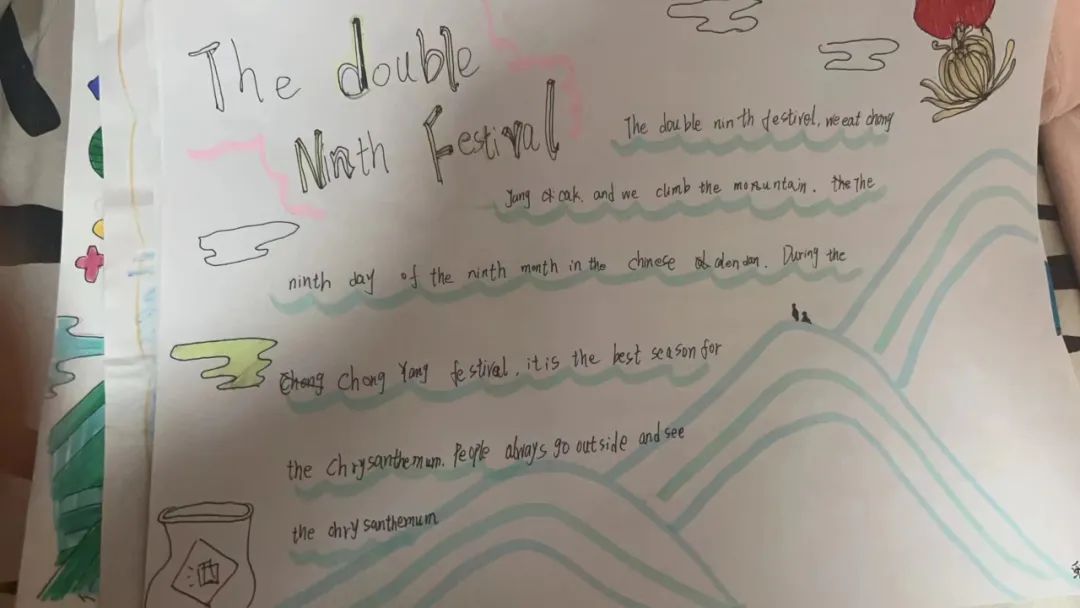 The double
Ninth Festival
The double ninth festivel, we eat chong
Yang cicak. and we climb the mosuntain. the The
ninth day of the ninth month in the chinese calendan. During the
Chong Chong Yang festivel, it is the best season for
the chrysanthemum. People always go outside and see
the chrysanthemum
酒